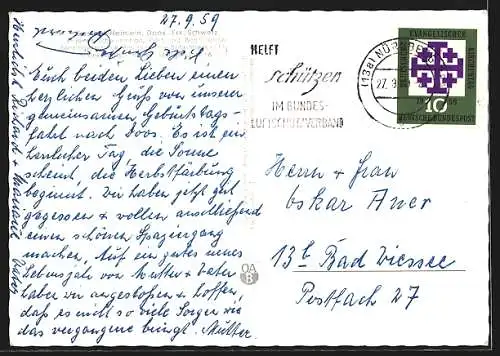 27.9.59
Euch beiden Lieben einen
herzlichen Gruß von unserer
gemeinsamen Geburtstags-
fahrt nach Doos. Es ist ein
herrlicher Tag die Sonne
scheint, die Herbstfärbung
beginnt. Wir haben jetzt gut
gegessen + wollen anschließend
einen schönen Spaziergang
machen. Auf ein gutes neues
Lebensjahr von Mutter + Vater
haben wir angestoßen + hoffen,
daß es nicht so viele Sorgen wie
das vergangene bringt. Mutter.
Herzlichst
HELFT
schützen
IM BUNDES-
LUFTSCHUTZVERBAND
(13a) NÜRNBERG
27. 9.
EVANGELISCHER
10
DEUTSCHE BUNDESPOST
Herrn + Frau
Oskar Auer
13b Bad Wiessee
Postfach 27